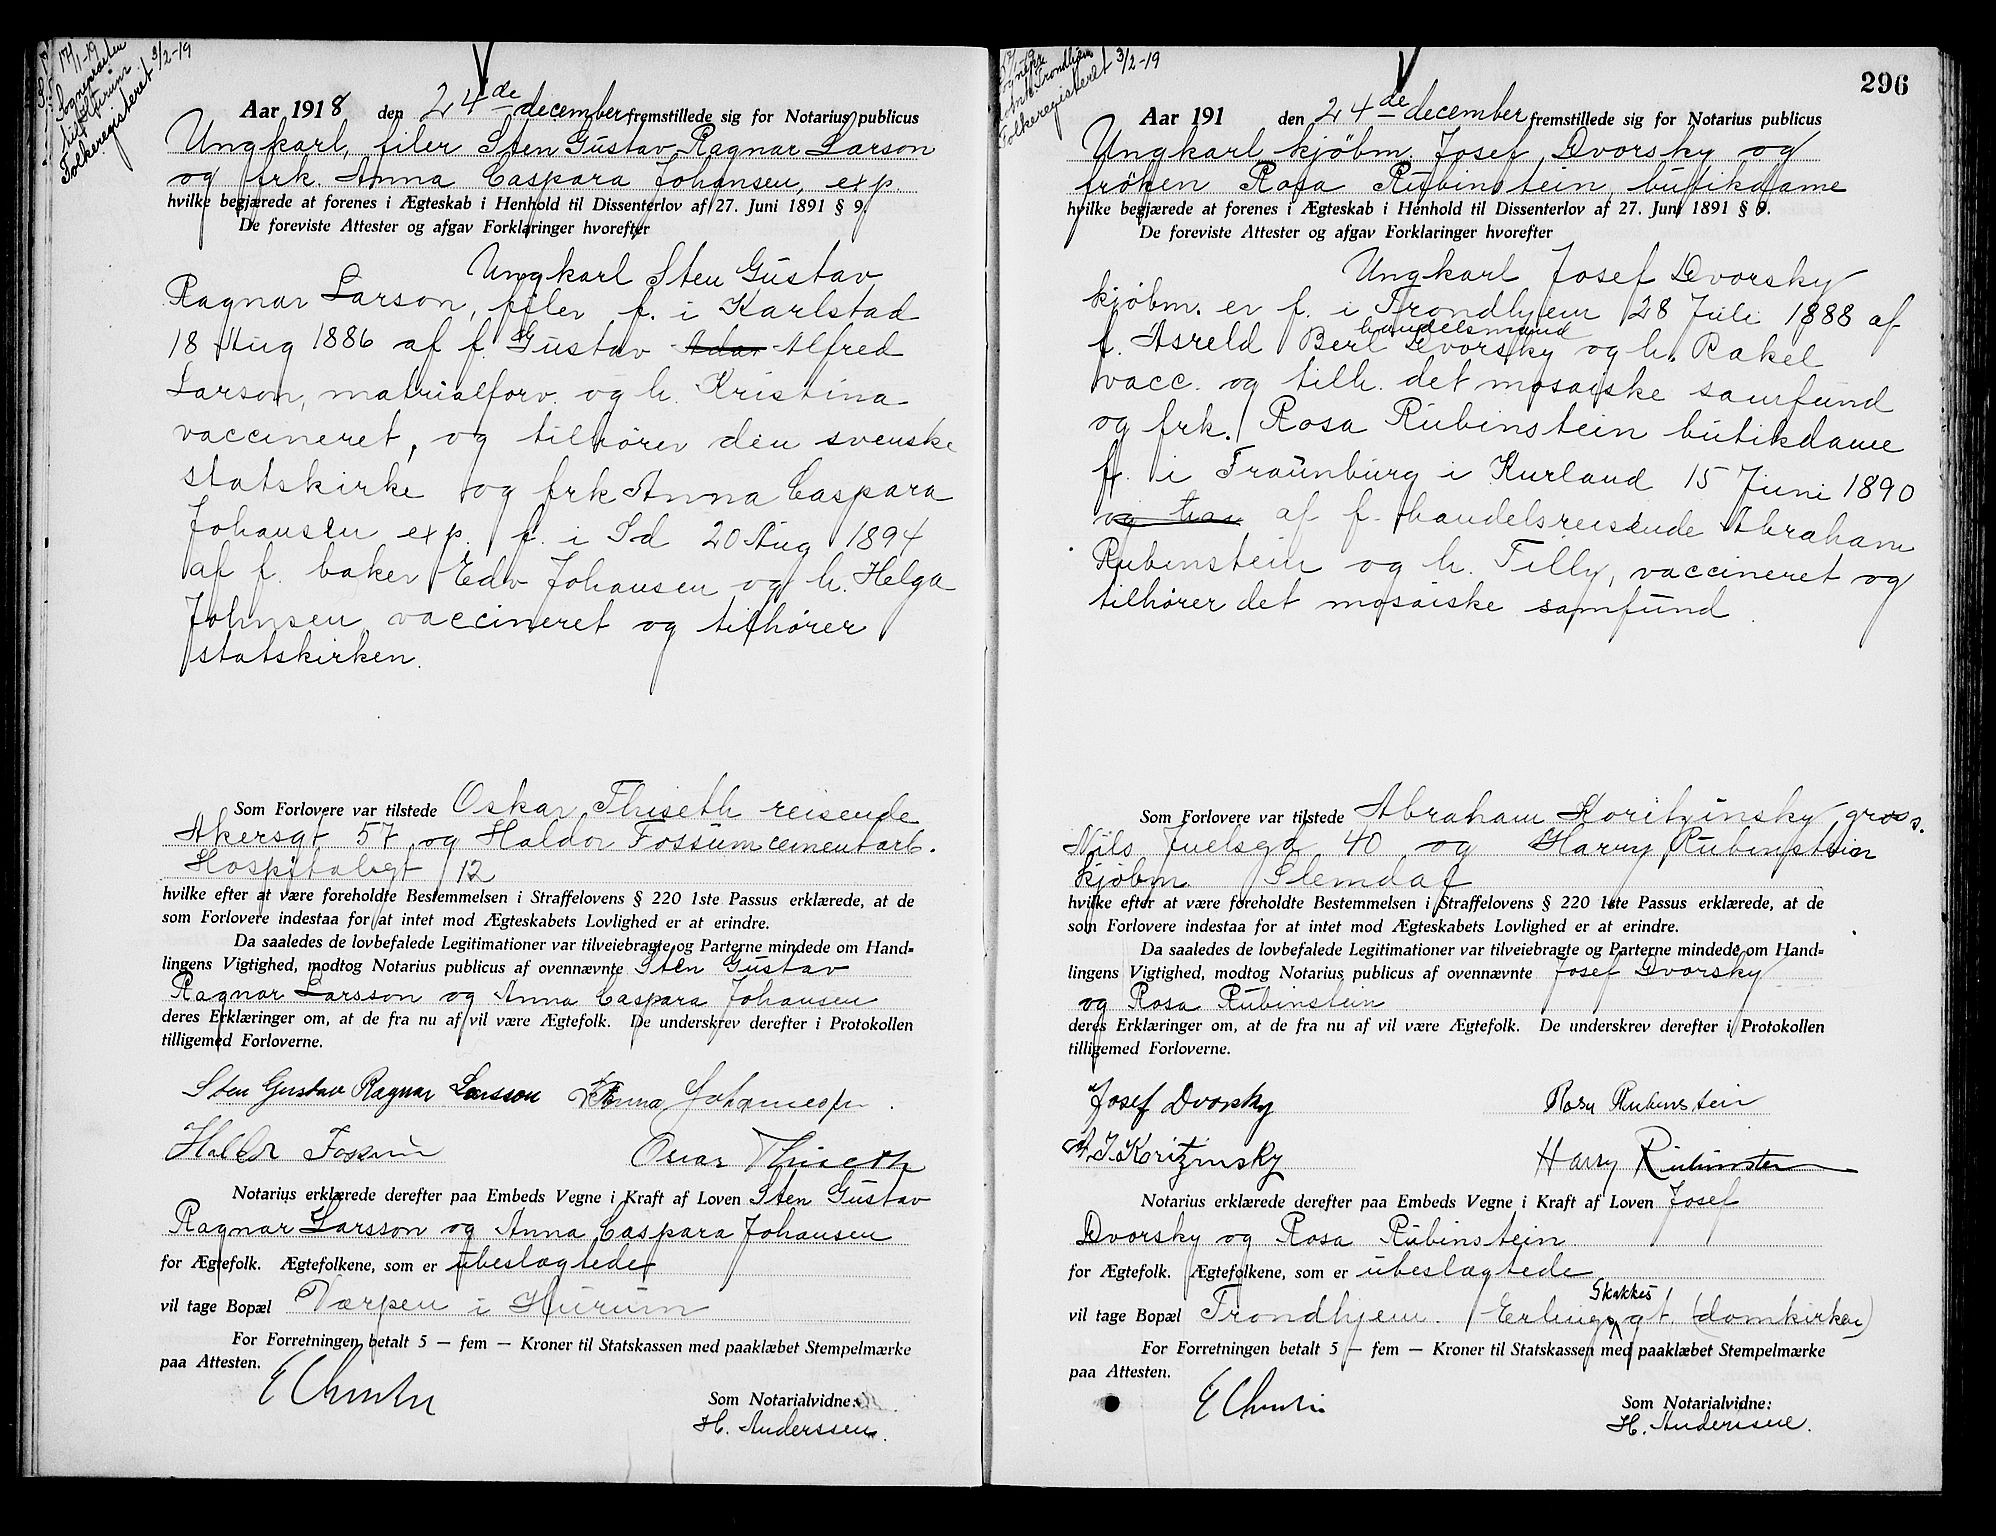 17/1-19
Sogneprästen
til Hurum
Folkeregisteret 3/2-19
Aar 1918 den 24de december fremstillede sig for Notarius publicus
Ungkarl, filer Sten Gustav Ragnar Larson
og frk. Anna Caspara Johansen, exp.
hvilke begjærede at forenes i Ægteskab i Henhold til Dissenterlov af 27. Juni 1891 § 9.
De foreviste Attester og afgav Forklaringer hvorefter
Ungkarl Sten Gustav
Ragnar Larson, filer f. i Karlstad
18 Aug 1886 af f. Gustav Adar Alfred
Larson, matrialforv. og h. Kristina
vaccineret, og tilhører den svenske
statskirke og frk Anna Caspara
Johansen exp. f. i Sd 20 Aug 1894
af f. baker Edv Johansen og h. Helga
Johnsen vaccineret og tilhører
statskirken.
Som Forlovere var tilstede Oskar Thiseth reisende
Akersgt 57 og Haldor Fossum cementarb.
Hospitalsgt 12
hvilke efter at være foreholdte Bestemmelsen i Straffelovens § 220 1ste Passus erklærede, at de
som Forlovere indestaa for at intet mod Ægteskabets Lovlighed er at erindre.
Da saaledes de lovbefalede Legitimationer var tilveiebragte og Parterne mindede om Hand-
lingens Vigtighed, modtog Notarius publicus af ovennævnte Sten Gustav
Ragnar Larsson og Anna Caspara Johansen
deres Erklæringer om, at de fra nu af vil være Ægtefolk. De underskrev derefter i Protokollen
tilligemed Forloverne.
Sten Gustav Ragnar Larsson Anna Johannesen.
Haldor Fossum Oscar Thiseth
Notarius erklærede derefter paa Embeds Vegne i Kraft af Loven Sten Gustav
Ragnar Larsson og Anna Caspara Johansen
for Ægtefolk. Ægtefolkene, som er ubeslægtede
vil tage Bopæl Værpen i Hurum
For Forretningen betalt 5 — fem — Kroner til Statskassen med paaklæbet Stempelmærke
paa Attesten.
Som Notarialvidne:
H. Anderssen.
296
Folkeregisteret 3/2-19
Aar 191 den 24de december fremstillede sig for Notarius publicus
Ungkarl kjøbm. Josef Dvorsky og
frøken Rosa Rubinstein, butikdame
hvilke begjærede at forenes i Ægteskab i Henhold til Dissenterlov af 27. Juni 1891 § 9.
De foreviste Attester og afgav Forklaringer hvorefter
Ungkarl Josef Dvorsky
kjøbm. er f. i Trondhjem 28 Juli 1888 af
handelsmand
f. Asreld Berl Dvorsky og h. Rakel
vacc. og tilh. det mosaiske samfund
og frk. Rosa Rubinstein butikdame
f. i Fraünburg i Kurland 15 Juni 1890
og har af f. handelsreisende Abraham
Rubinstein og h. Tilly, vaccineret og
tilhører det mosaiske samfund.
Som Forlovere var tilstede Abraham Koritzinsky gross.
Nils Juelsgd 40 og Harry Rubinstein
kjøbm. Slemdal
hvilke efter at være foreholdte Bestemmelsen i Straffelovens § 220 1ste Passus erklærede, at de
som Forlovere indestaa for at intet mod Ægteskabets Lovlighed er at erindre.
Da saaledes de lovbefalede Legitimationer var tilveiebragte og Parterne mindede om Hand-
lingens Vigtighed, modtog Notarius publicus af ovennævnte Josef Dvorsky
og Rosa Rubinstein
deres Erklæringer om, at de fra nu af vil være Ægtefolk. De underskrev derefter i Protokollen
tilligemed Forloverne.
Josef Dvorsky Rosa Rubinstein
A. I. Koritzinsky Harry Rubinstein
Notarius erklærede derefter paa Embeds Vegne i Kraft af Loven Josef
Dvorsky og Rosa Rubinstein
for Ægtefolk. Ægtefolkene, som er ubeslægtede
Skakkes
vil tage Bopæl Trondhjem. Erlings gt. (domkirken)
For Forretningen betalt 5 — fem — Kroner til Statskassen med paaklæbet Stempelmærke
paa Attesten.
Som Notarialvidne:
H. Anderssen.